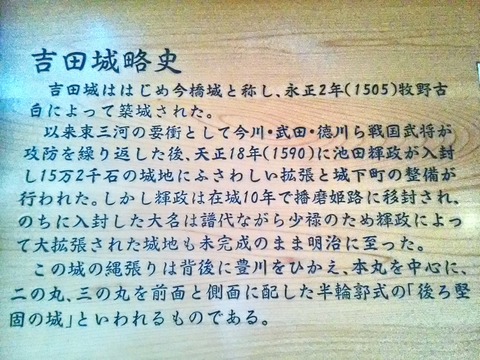 吉田城略史
吉田城ははじめ今橋城と称し、永正2年(1505)牧野古
白によって築城された。
以来東三河の要衝として今川・武田・徳川ら戦国武将が
攻防を繰り返した後、天正18年(1590)に池田輝政が入封
し15万2千石の城地にふさわしい拡張と城下町の整備が
行われた。しかし輝政は在城10年で播磨姫路に移封され、
のちに入封した大名は譜代ながら少禄のため輝政によっ
て大拡張された城地も未完成のまま明治に至った。
この城の縄張りは背後に豊川をひかえ、本丸を中心に、
二の丸、三の丸を前面と側面に配した半輪郭式の「後ろ堅
固の城」といわれるものである。